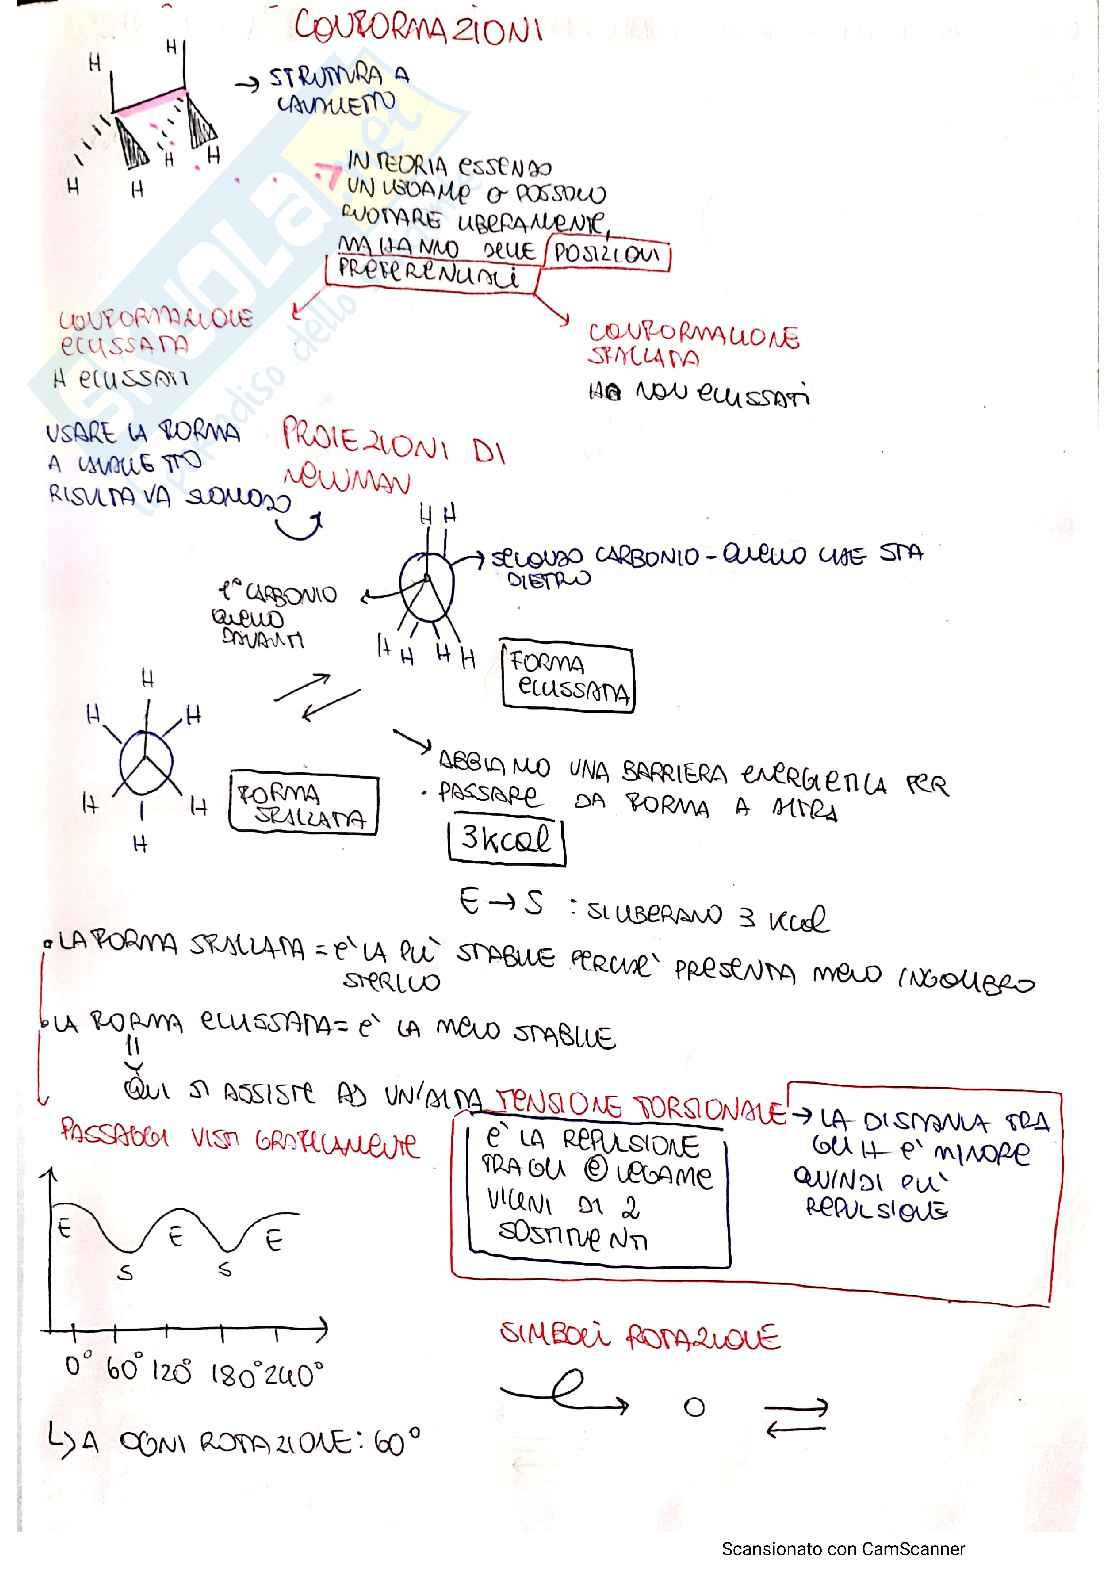 CONFORMAZIONI
H
H
→ STRUTTURA A
CAVALLETTO
H
H
H
H
IN TEORIA ESSENDO
UN LEGAME σ POSSONO
RUOTARE LIBERAMENTE,
MA HANNO DELLE POSIZIONI
PREFERENZIALI
CONFORMAZIONE
ECLISSATA
H ECLISSATI
CONFORMAZIONE
SFALSATA
H NON ECLISSATI
USARE LA FORMA
A CAVALLETTO
RISULTAVA SCOMODO
PROIEZIONI DI
NEWMAN
H H
SECONDO CARBONIO - QUELLO CHE STA
DIETRO
1° CARBONIO
QUELLO
DAVANTI
H H H H
FORMA
ECLISSATA
H
H H
H H
H
FORMA
SFALSATA
ABBIAMO UNA BARRIERA ENERGETICA PER
PASSARE DA FORMA A ALTRA
3 kcal
E → S : SI LIBERANO 3 kcal
LA FORMA SFALSATA = È LA PIÙ STABILE PERCHÈ PRESENTA MENO INGOMBRO
STERICO
LA FORMA ECLISSATA = È LA MENO STABILE
QUI SI ASSISTE AD UN'ALTA TENSIONE TORSIONALE → LA DISTANZA TRA
GLI H È MINORE
QUINDI PIÙ
REPULSIONE
È LA REPULSIONE
TRA GLI e LEGAME
VICINI DI 2
SOSTITUENTI
PASSAGGI VISTI GRAFICAMENTE
E E E
S S
0° 60° 120° 180° 240°
↳ A OGNI ROTAZIONE: 60°
SIMBOLI ROTAZIONE
SKUOLA.net
il paradiso dello
Scansionato con CamScanner